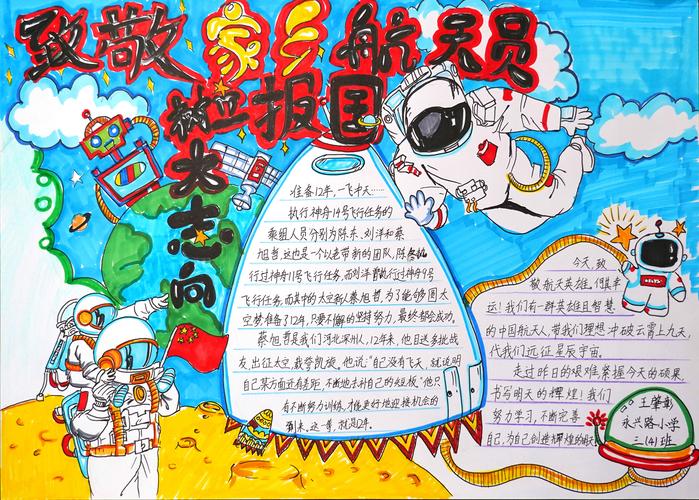 致敬家乡航天员
树立报国
大志向
准备12年,一飞冲天……
执行神舟14号飞行任务的
乘组人员分别为陈冬、刘洋和蔡
旭哲,这也是一个以老带新的团队,陈冬执
行过神舟11号飞行任务,而刘洋曾执行过神舟9号
飞行任务,而其中的太空新人蔡旭哲,为了能够圆太
空梦,准备了12年,只要不懈的坚持努力,最终都会成功。
蔡旭哲是我们河北深州人,12年来,他目送多批战
友,出征太空,载誉凯旋。他说:“自己没有飞天,就说明
自己某方面还有差距,不断地去补自己的短板”他只
有不断努力训练,才能更好地迎接机会的
到来,这一等,就是12年。
今天,致
敬航天英雄,何其幸
运!我们有一群英雄且智慧
的中国航天人,带我们理想冲破云霄上九天,
代我们远征星辰宇宙。
走过昨日的艰难,掌握今天的硕果,
书写明天的辉煌!我们
努力学习,不断完善
自己,为自己创造辉煌的明天
王肇勋
永兴路小学
三(4)班